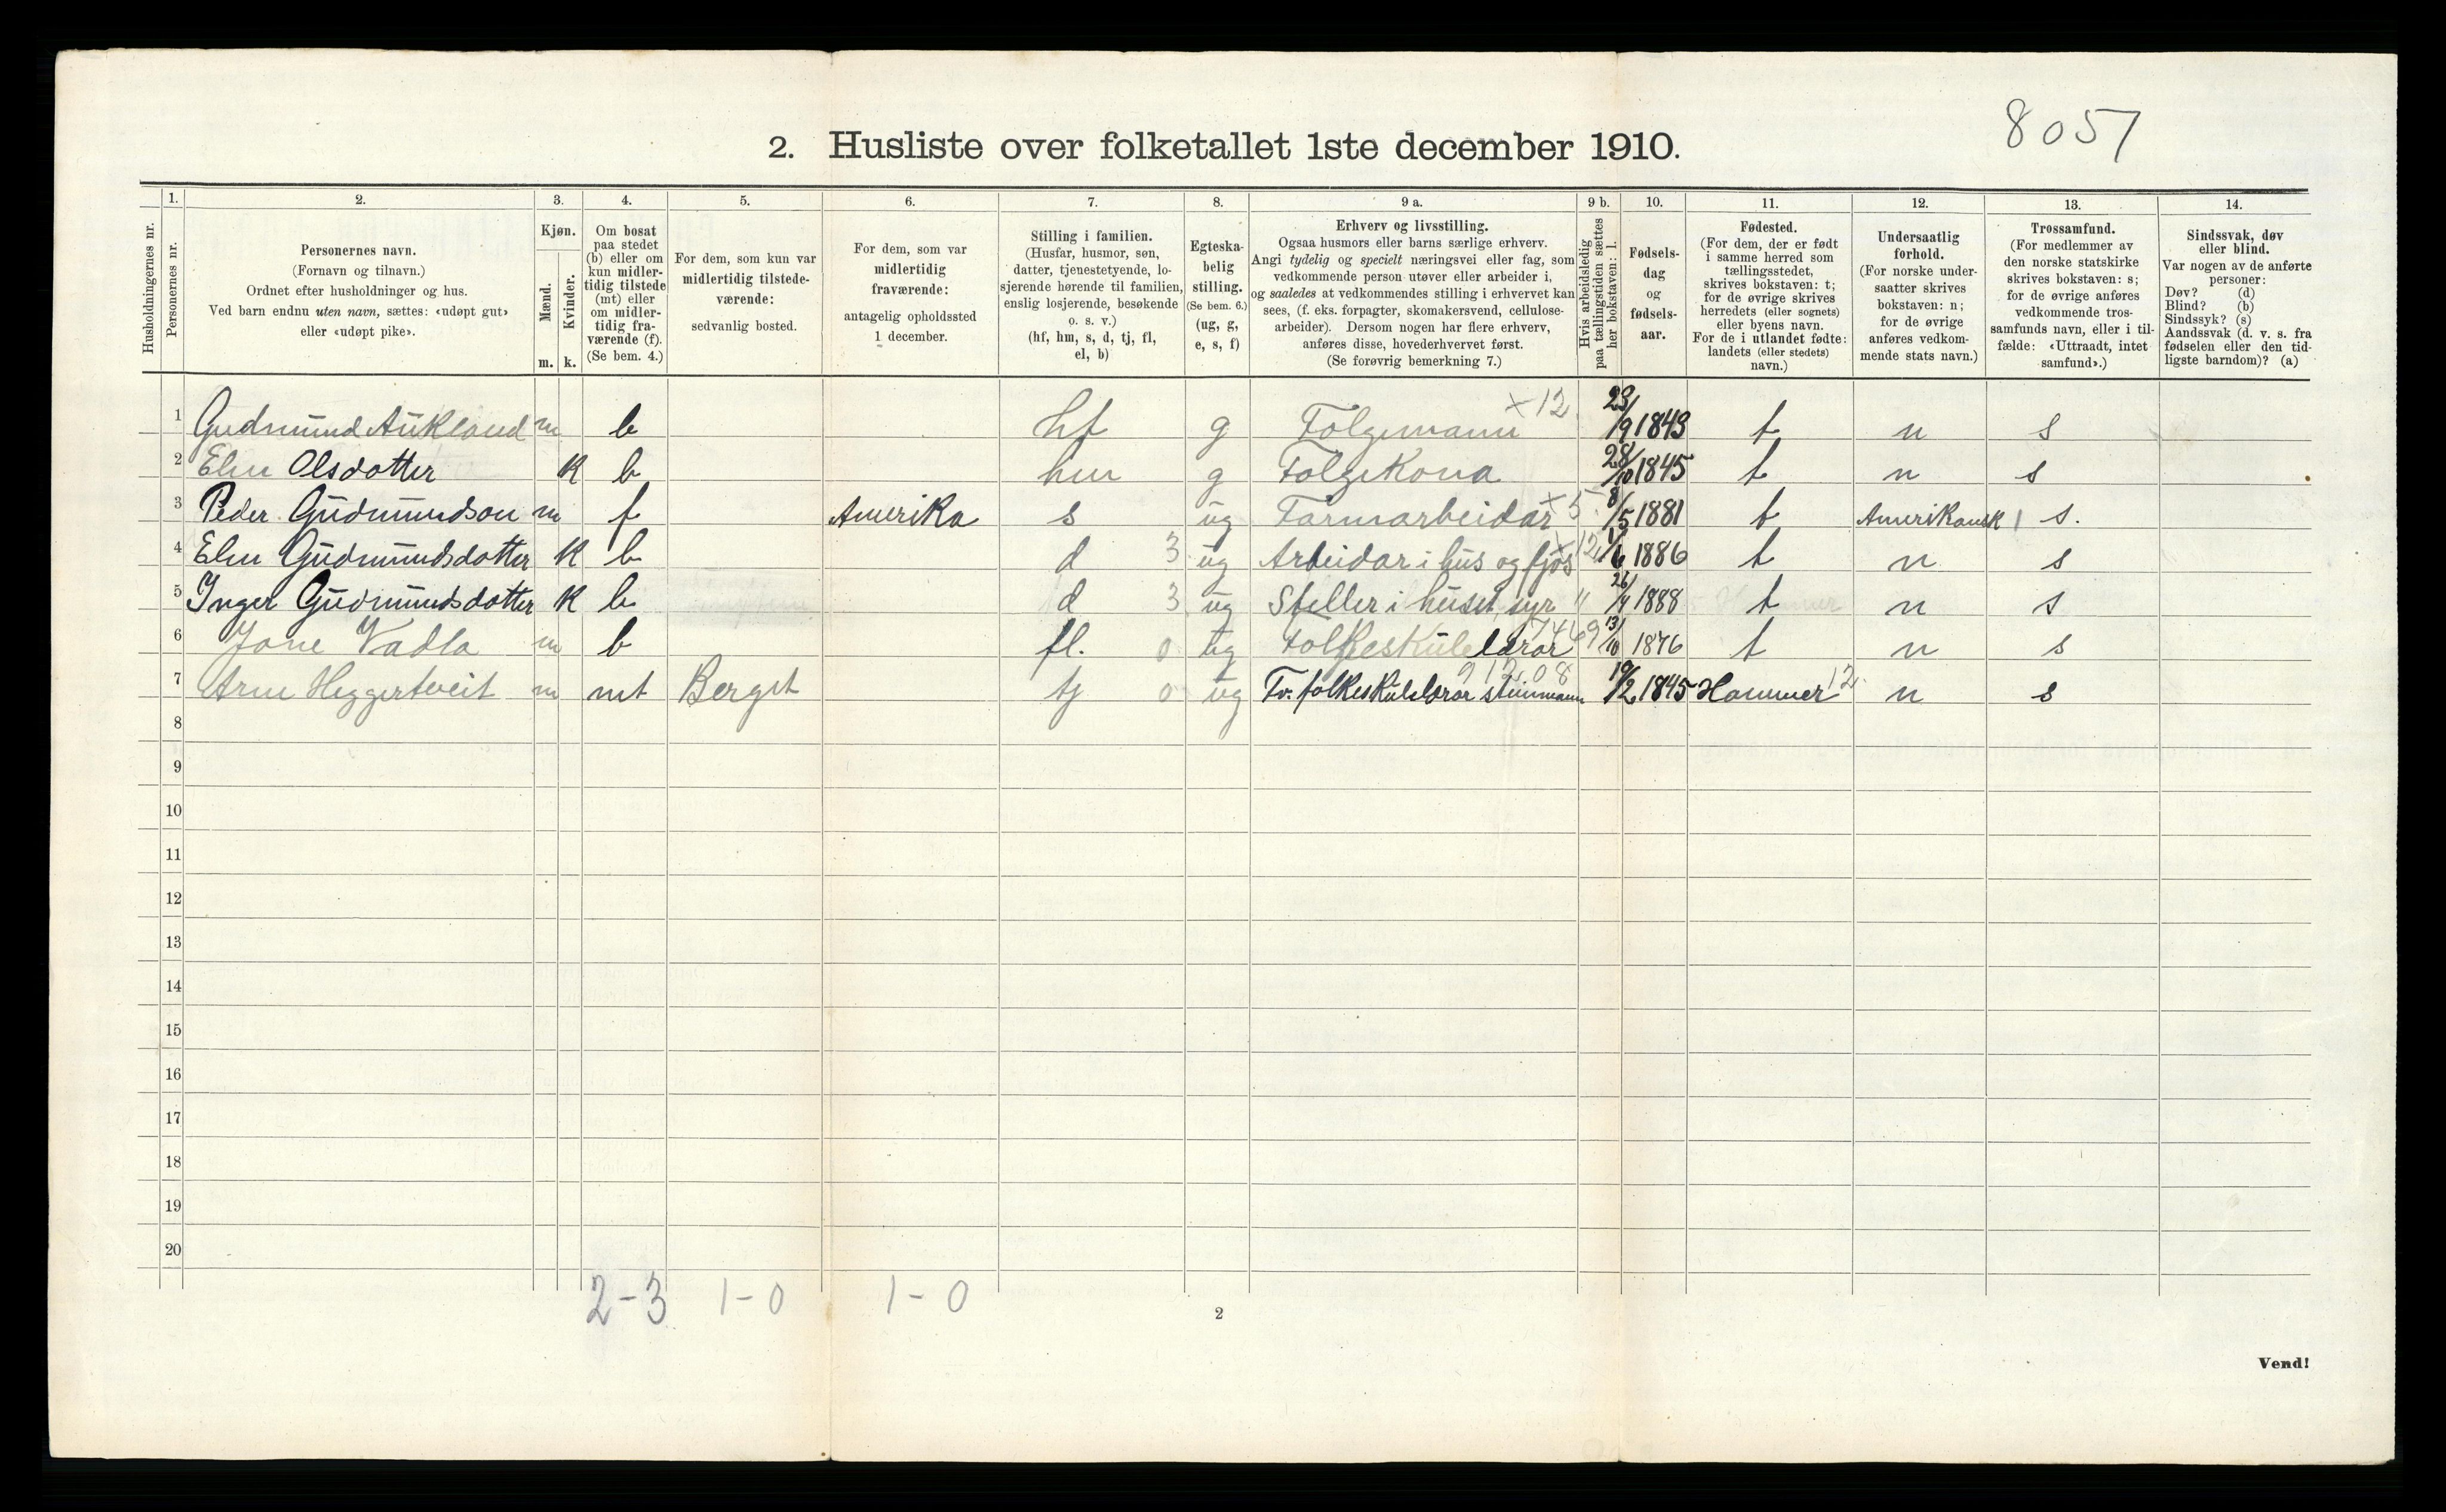 8057
2. Husliste over folketallet 1ste december 1910.
Husholdningernes nr.
1.
Personernes nr.
2.
Personernes navn.
(Fornavn og tilnavn.)
Ordnet efter husholdninger og hus.
Ved barn endnu uten navn, sættes: «udøpt gut»
eller «udøpt pike».
3.
Kjøn.
Mænd.
Kvinder.
m. k.
4.
Om bosat
paa stedet
(b) eller om
kun midler-
tidig tilstede
(mt) eller
om midler-
tidig fra-
værende (f).
(Se bem. 4.)
5.
For dem, som kun var
midlertidig tilstede-
værende:
sedvanlig bosted.
6.
For dem, som var
midlertidig
fraværende:
antagelig opholdssted
1 december.
7.
Stilling i familien.
(Husfar, husmor, søn,
datter, tjenestetyende, lo-
sjerende hørende til familien,
enslig losjerende, besøkende
o. s. v.)
(hf, hm, s, d, tj, fl,
el, b)
8.
Egteska-
belig
stilling.
(Se bem. 6.)
(ug, g,
e, s, f)
9 a.
Erhverv og livsstilling.
Ogsaa husmors eller barns særlige erhverv.
Angi tydelig og specielt næringsvei eller fag, som
vedkommende person utøver eller arbeider i,
og saaledes at vedkommendes stilling i erhvervet kan
sees, (f. eks. forpagter, skomakersvend, cellulose-
arbeider). Dersom nogen har flere erhverv,
anføres disse, hovederhvervet først.
(Se forøvrig bemerkning 7.)
9 b.
Hvis arbeidsledig
paa tællingstiden sættes
her bokstaven: l.
10.
Fødsels-
dag
og
fødsels-
aar.
11.
Fødested.
(For dem, der er født
i samme herred som
tællingsstedet,
skrives bokstaven: t;
for de øvrige skrives
herredets (eller sognets)
eller byens navn.
For de i utlandet fødte:
landets (eller stedets)
navn.)
12.
Undersaatlig
forhold.
(For norske under-
saatter skrives
bokstaven: n;
for de øvrige
anføres vedkom-
mende stats navn.)
13.
Trossamfund.
(For medlemmer av
den norske statskirke
skrives bokstaven: s;
for de øvrige anføres
vedkommende tros-
samfunds navn, eller i til-
fælde: «Uttraadt, intet
samfund».)
14.
Sindssvak, døv
eller blind.
Var nogen av de anførte
personer:
Døv? (d)
Blind? (b)
Sindssyk? (s)
Aandssvak (d. v. s. fra
fødselen eller den tid-
ligste barndom)? (a)
1 Gudmund Aukland m b hf g Folgemann x 12 23/9 1843 t n s
2 Elen Olsdotter k b hm g Folgekona 28/10 1845 t n s
3 Peder Gudmundson m f Amerika s ug Farmarbeidar x 5 8/5 1881 t Amerikansk 1 s.
4 Elen Gudmundsdotter k b d 3 ug Arbeidar i hus og fjøs x 12 1886 t n s
5 Inger Gudmundsdotter k b d 3 ug Steller i huset, syr " 26/4 1888 t n s
6 Jone Vadla m b fl. 0 ug Folkeskulelærar 7469 13/10 1876 t n s
7 Arne Heggertveit m mt Berget tj 0 ug Fv. folkeskulelærar steinmann 912.08 19/2 1845 Hammer 12 n s
8
9
10
11
12
13
14
15
16
17
18
19
20
2-3 1-0 1-0
2
Vend!